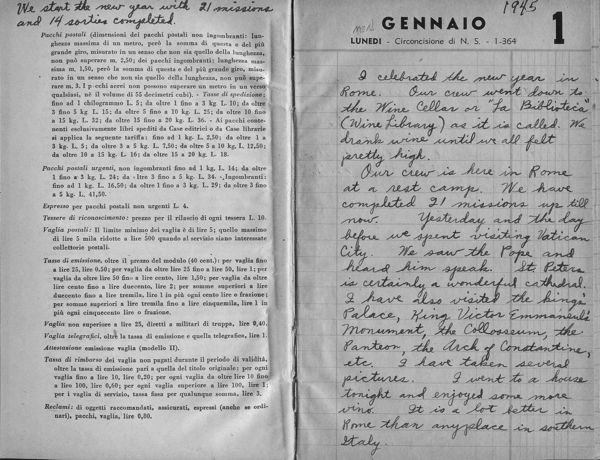 We start the new year with 21 missions
and 14 sorties completed.
Pacchi postali (dimensioni dei pacchi postali non ingombranti: lun-
ghezza massima di un metro, però la somma di questa e del più
grande giro, misurato in un senso che non sia quello della lunghezza,
non può superare m. 2,50; dei pacchi ingombranti: lunghezza mas-
sima m. 1,50, però la somma di questa e del più grande giro, misu-
rato in un senso che non sia quello della lunghezza, non può supe-
rare m. 3. I pacchi aerei non possono superare un metro in un verso
qualsiasi, nè il volume di 25 decimetri cubi). - Tasse di spedizione:
fino ad 1 chilogrammo L. 5; da oltre 1 fino a 3 kg. L. 10; da oltre
3 fino 5 kg L. 15; da oltre 5 fino a 10 kg L. 25; da oltre 10 fino
a 15 kg. L. 32; da oltre 15 fino a 20 kg. L. 36. - Ai pacchi conte-
nenti esclusivamente libri spediti da Case editrici o da Case librarie
si applica la seguente tariffa: fino ad 1 kg. L. 2,50; da oltre 1 a
3 kg. L. 5; da oltre 3 a 5 kg. L. 7,50; da oltre 5 a 10 kg. L. 12,50;
da oltre 10 a 15 kg. L. 16; da oltre 15 a 20 kg. L. 18.
Pacchi postali urgenti, non ingombranti fino ad 1 kg. L. 14; da oltre
1 fino a 3 kg. L. 24; da oltre 3 fino a 5 kg. L. 34. - Ingombranti:
fino ad 1 kg. L. 16,50; da oltre 1 fino a 3 kg. L. 29; da oltre 3 fino
a 5 kg. L. 41,50.
Espresso per pacchi postali non urgenti L. 4.
Tessere di riconoscimento: prezzo per il rilascio di ogni tessera L. 10.
Vaglia postali: Il limite minimo dei vaglia è di lire 5; quello massimo
di lire 5 mila ridotto a lire 500 quando al servizio siano interessate
collettorie postali.
Tassa di emissione, oltre il prezzo del modulo (40 cent.): per vaglia fino
a lire 25, lire 0,50; per vaglia da oltre lire 25 fino a lire 50, lire 1; per
vaglia da oltre lire 50 fino a lire cento, lire 1,50; per vaglia da oltre
lire cento fino a lire duecento, lire 2; per somme superiori a lire
duecento fino a lire tremila, lire 1 in più ogni cento lire o frazione;
per somme superiori a lire tremila fino a lire cinquemila, lire 1 in
più ogni cinquecento lire o frazione.
Vaglia non superiore a lire 25, diretti a militari di truppa, lire 0,40.
Vaglia telegrafici, oltre la tassa di emissione e quella telegrafica, lire 1.
Attestazione emissione vaglia (modello II).
Tassa di rimborso dei vaglia non pagati durante il periodo di validità,
oltre la tassa di emissione pari a quella del titolo originale: per ogni
vaglia fino a lire 10, lire 0,20; per ogni vaglia da oltre lire 10 fino
a lire 100, lire 0,60; per ogni vaglia superiore a lire 100, lire 1;
per i vaglia di servizio, tassa fissa per qualunque somma, lire 3.
Reclami: di oggetti raccomandati, assicurati, espressi (anche se ordi-
nari), pacchi, vaglia, lire 0,80.
1945
GENNAIO
LUNEDI - Circoncisione di N. S. - 1-364
1
I celebrated the new year in
Rome. Our crew went down to
the Wine Cellar or "La Biblioteca"
(Wine Library) as it is called. We
drank wine until we all felt
pretty high.
Our crew is here in Rome
at a rest camp. We have
completed 21 missions up till
now. Yesterday and the day
before we spent visiting Vatican
City. We saw the Pope and
heard him speak. St Peters
is certainly a wonderful cathedral.
I have also visited the kings
Palace, King Victor Emmanuels
Monument, the Collosseum, the
Panteon, the Arch of Constantine,
etc. I have taken several
pictures. I went to a house
tonight and enjoyed some more
vino. It is a lot better in
Rome than anyplace in southern
Italy.